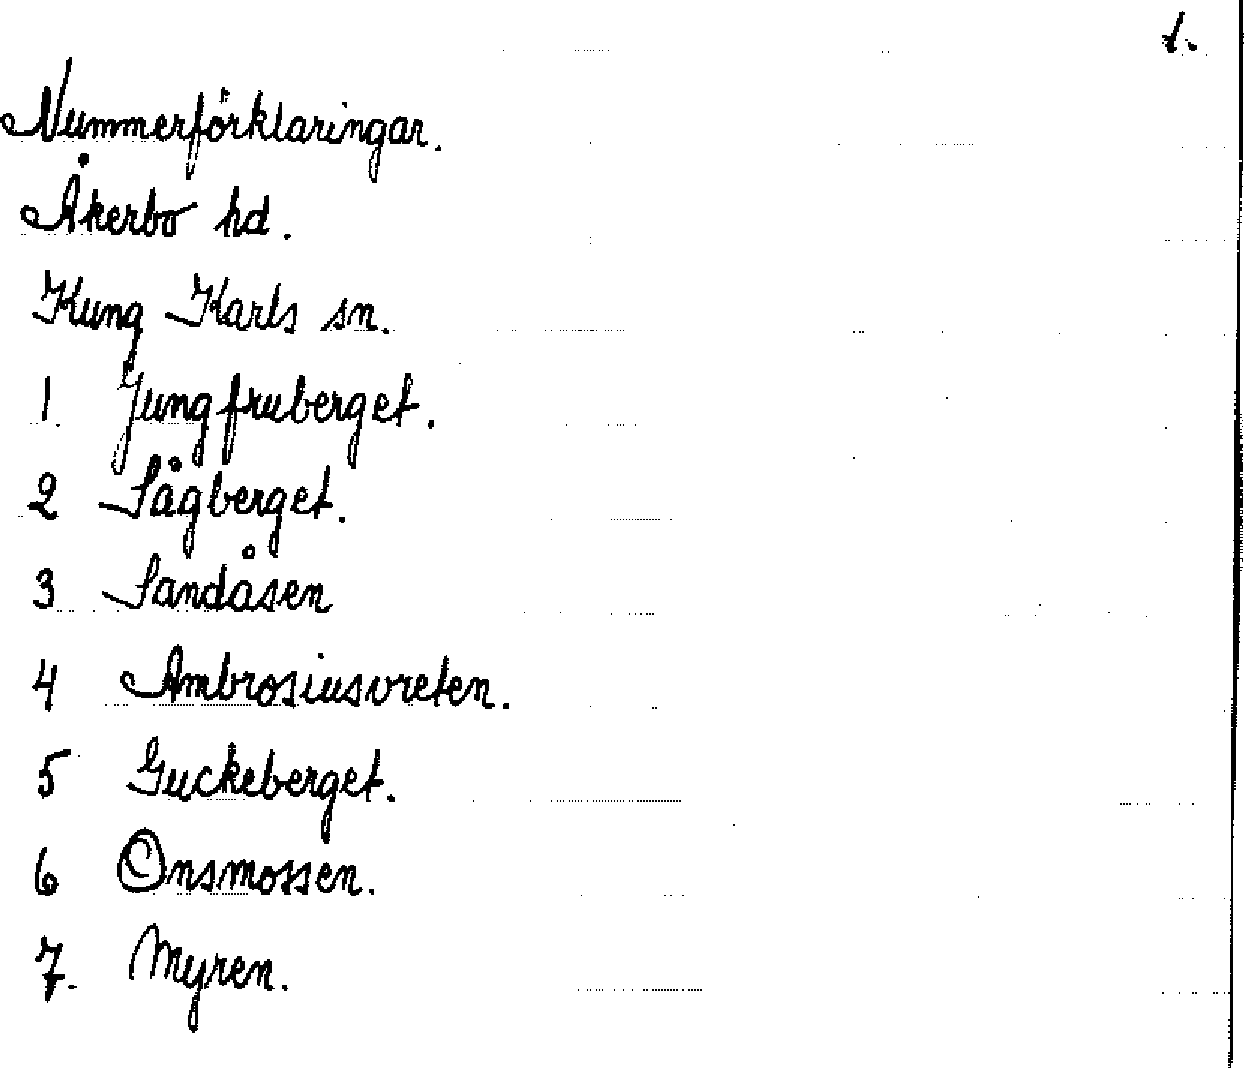 1.
Nummerförklaringar.
Åkerbo hd.
Kung Karls sn.
1. Jungfruberget.
2 Sågberget.
3 Sandåsen
4 Ambrosiusvreten.
5 Guckeberget.
6 Onsmossen.
7. Myren.